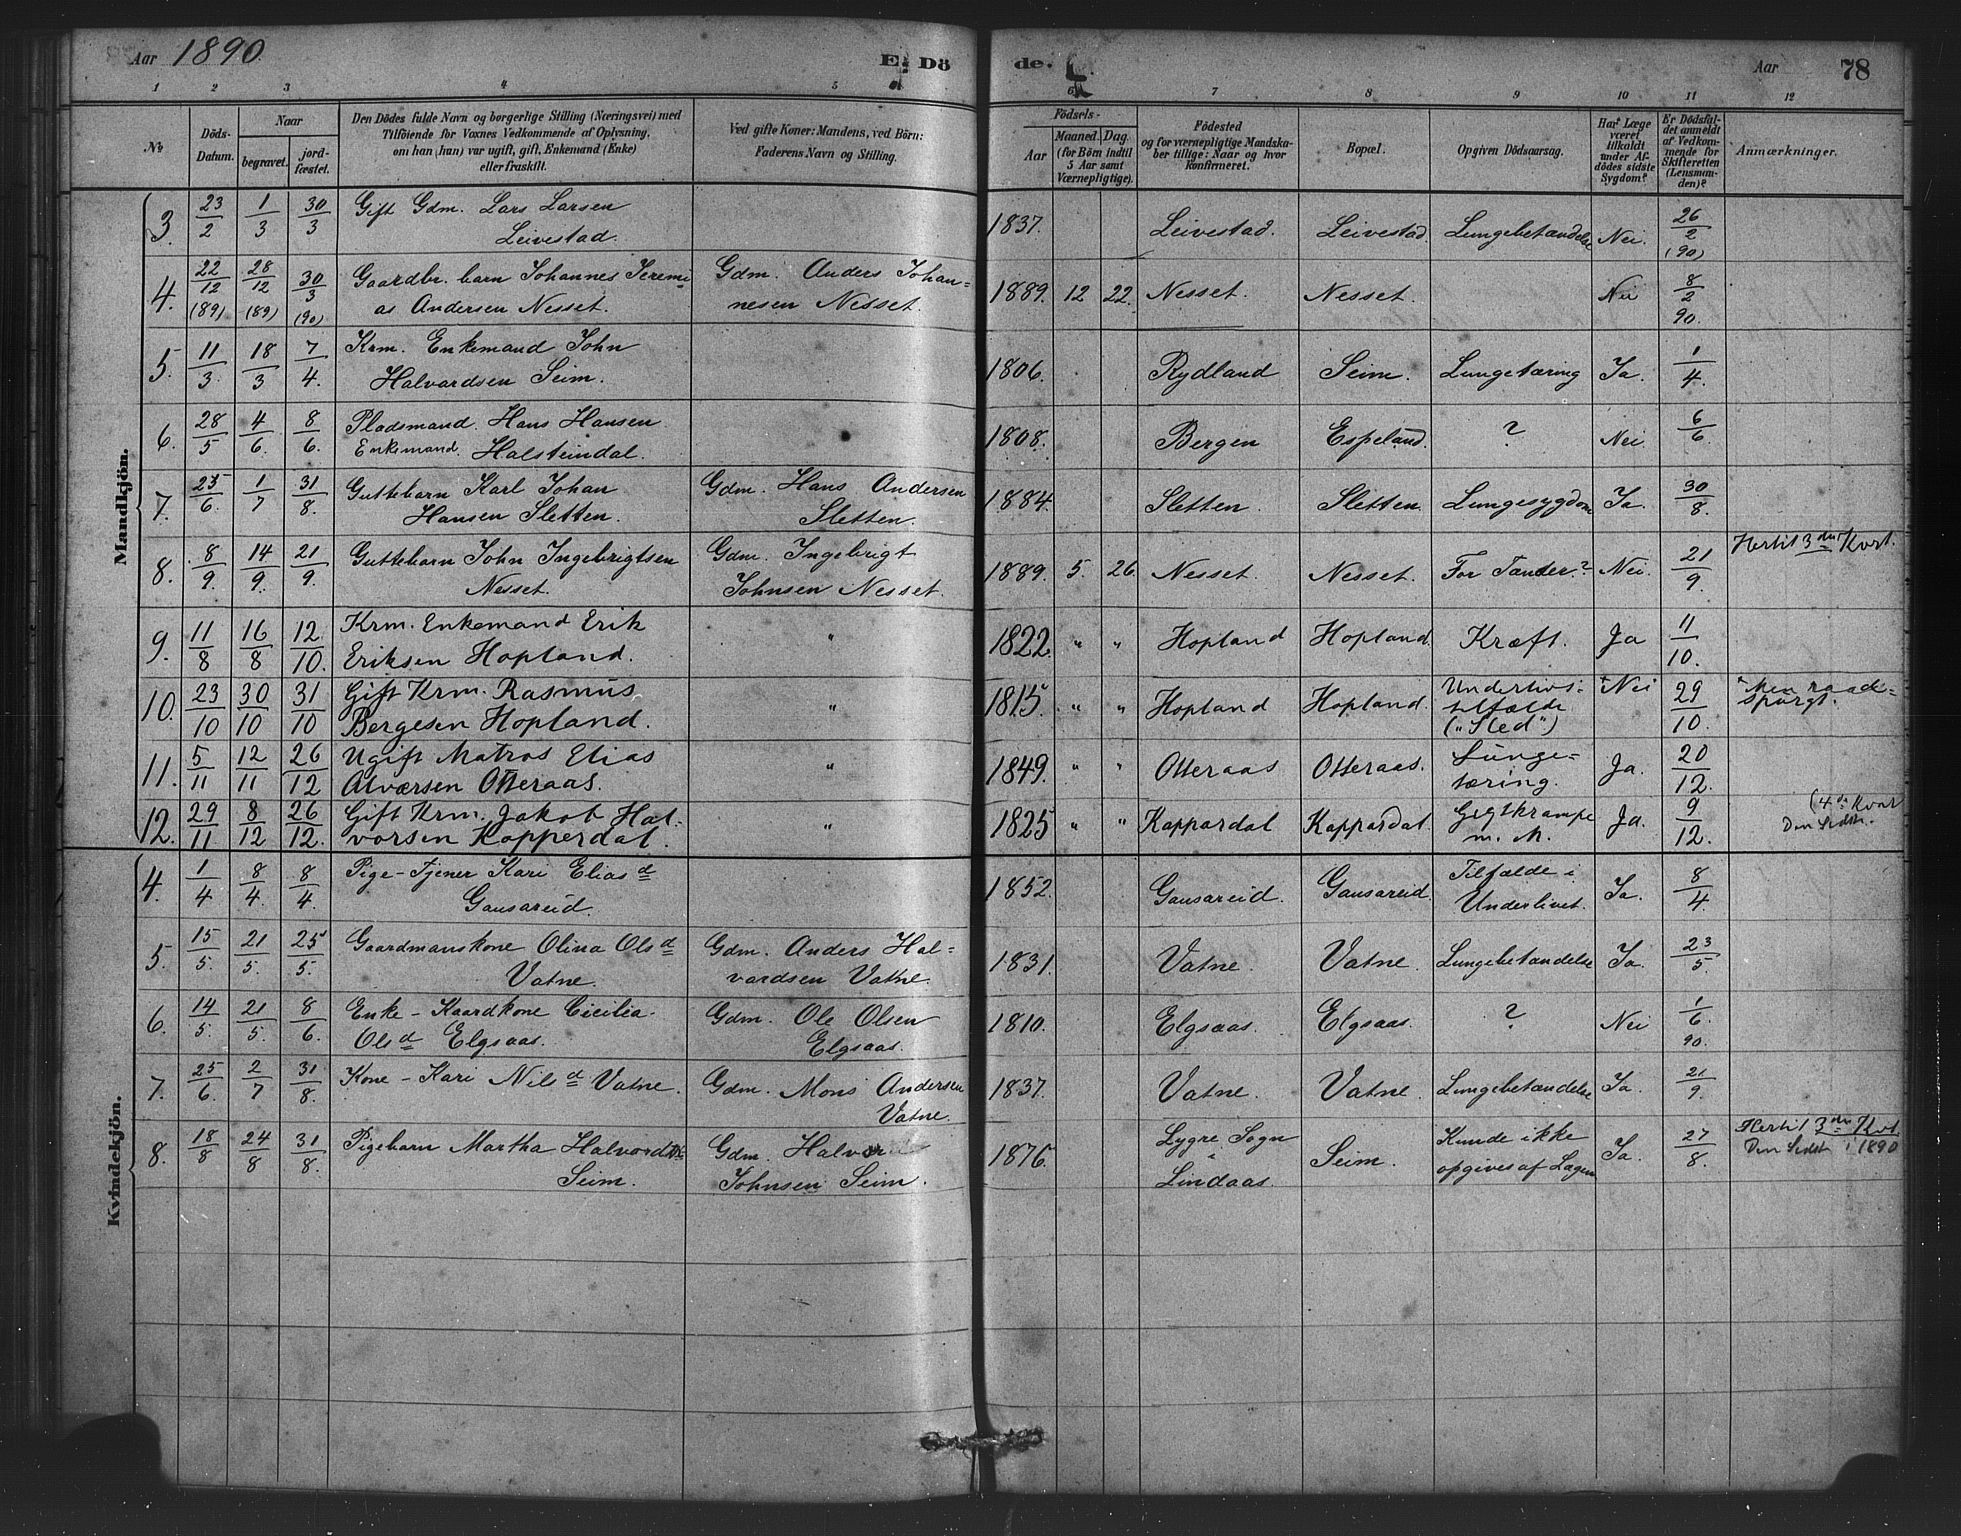 Aar 1890.
E. Dö
de.
Aar 78
1 2 3 4 5 6 7 8 9 10 11 12
No
Döds-Datum.
Naar
begravet.
jordfæstet.
Den Dödes fulde Navn og borgerlige Stilling (Næringsvei) med
Tilföiende for Voxnes Vedkommende af Oplysning,
om han (hun) var ugift, gift, Enkemand (Enke)
eller fraskilt.
Ved gifte Koner: Mandens, ved Börn:
Faderens Navn og Stilling.
Födsels-
Aar
Maaned. Dag.
(for Börn indtil
5 Aar samt
Værnepligtige).
Födested
og for værnepligtige Mandska-
ber tillige: Naar og hvor
Konfirmeret.
Bopæl.
Opgiven Dödsaarsag.
Har Læge
været
tilkaldt
under Af-
dödes sidste
Sygdom?
Er Dödsfal-
det anmeldt
af Vedkom-
mende for
Skifteretten
(Lensman-
den)?
Anmærkninger.
Mandkjön.
3. 23/2 1/3 30/3 Gift Gdm. Lars Larsen
Leivestad. 1837. Leivestad. Leivestad. Lungebetændelse Nei. 26/2 (90)
4. 22/12 (89) 28/12 (89) 30/3 (90) Gaardbr. barn Johannes Jeremi-
as Andersen Nesset. Gdm. Anders Johan-
nesen Nesset. 1889. 12 22. Nesset. Nesset. Nei 8/2 90.
5. 11/3. 18/3 7/4. Krm. Enkemand John
Halvardsen Seim. 1806. Rydland Seim. Lungetæring Ja. 1/4.
6. 28/5 4/6. 8/6. Pladsmand. Hans Hansen
Enkemand. Halsteindal. 1808. Bergen Espeland. ? Nei 6/6.
7. 25/6. 1/7 31/8. Guttebarn Karl Johan
Hansen Sletten. Gdm. Hans Andersen
Sletten. 1884. Sletten. Sletten. Lungesygdom Ja. 30/8.
8. 8/9. 14/9. 21/9. Guttebarn John Ingebrigtsen
Nesset. Gdm. Ingebrigt
Johnsen Nesset. 1889. 5. 26. Nesset. Nesset. For Tænder? Nei. 21/9. Hertil 3die Kvrt.
9. 11/8 16/8 12/10. Krm. Enkemand Erik
Eriksen Hopland. " 1822. " " Hopland Hopland. Kræft. Ja 11/10.
10. 23/10 30/10 31/10 Gift Krm. Rasmus
Bergesen Hopland. " 1815. " " Hopland Hopland. Underlivs-
tilfælde
("Sted") Nei 29/10. Men raad-
spurgt.
11. 5/11 12/11 26/12 Ugift Matros Elias
Alværsen Otteraas. " 1849. " " Otteraas Otteraas. Lunge-
tæring. Ja. 20/12.
12. 29/11 8/12 26/12. Gift Krm. Jakob Hal-
vorsen Kopperdal. " 1825 " " Kappardal Kappardal. Gigtkrampe
m. M. Ja. 9/12. (4de Kvart
Den Sidste.
Kvindekjön.
4. 1/4 8/4. 8/4. Pige-Tjener Kari Eliasd
Gausareid. 1852. Gausareid. Gausareid. Tilfælde i
Underlivet. Ja. 8/4.
5. 15/5. 21/5. 25/5. Gaardmanskone Olina Olsd
Vatne. Gdm. Anders Hal-
vardsen Vatne. 1831. Vatne. Vatne. Lungebetændelse Ja. 23/5.
6. 14/5. 21/5. 8/6. Enke - Kaardkone Cicilia
Olsd Elgsaas. Gdm. Ole Olsen
Elgsaas. 1810. Elgsaas. Elgsaas. ? Nei 1/6. 90.
7. 25/6. 2/7 31/8. Kone - Kari Nilsd Vatne. Gdm. Mons Andersen
Vatne. 1837. Vatne. Vatne. Lungebetændelse Ja. 21/9.
8. 18/8 24/8 31/8. Pigebarn Martha Halvordsd
Seim. Gdm. Halvord
Johnsen Seim. 1876. Lygre Sogn
Lindaas. Seim. Kunde ikke
opgives af Lægen Ja. 27/8. Hertil 3die Kvt
Den Sidste i 1890